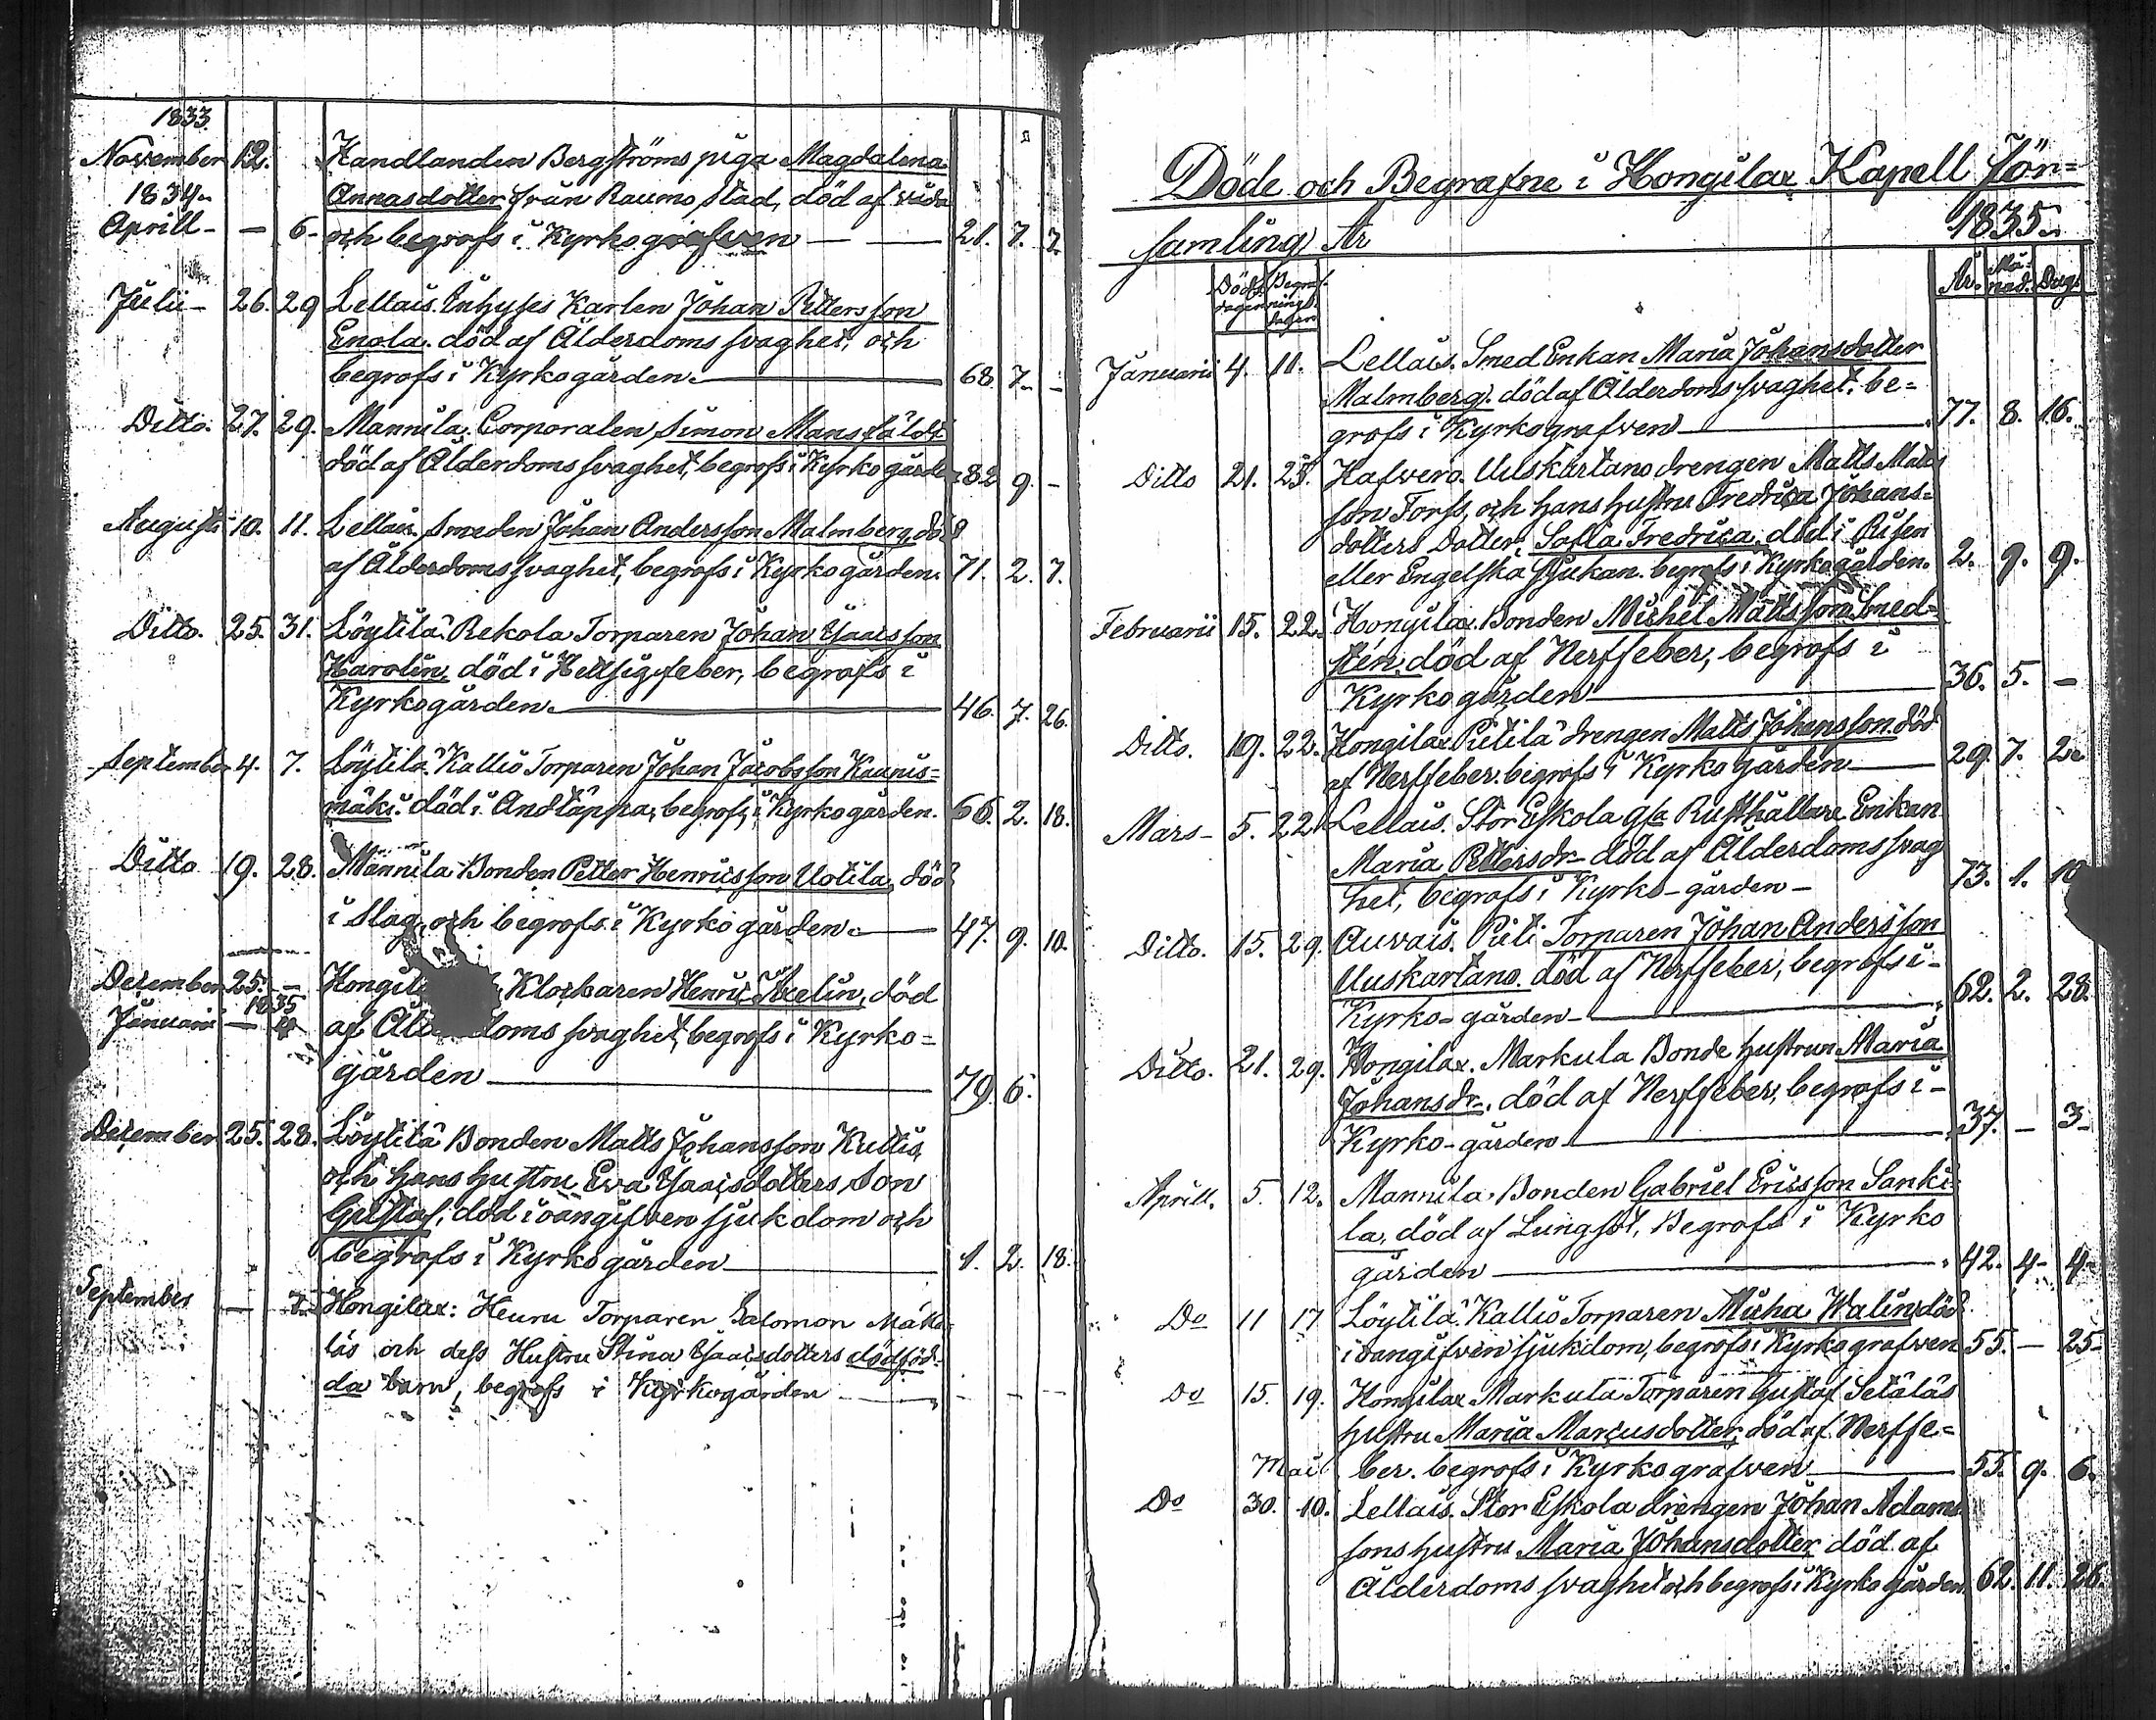 1833.
November 12. Handlanden Bergströms piga Magdalena
1834. Annasdotter från Raumo Stad, död af våda
Aprill - — 6. och begrofs i Kyrkografven — — 21. 7. 7.
Julii - 26. 29 Lellais Inhyses Karlen Johan Pettersson
Enola. död af Ålderdoms svaghet, och
begrofs i Kyrkogården. — 68. 7. -
Ditto. 27. 29. Mannila. Corporalen Simon
död af Ålderdoms svaghet, begrofs i Kyrkogården 82 9. -
Augusti 10. 11. Lellais. Smeden Johan Andersson Malmberg död
af Ålderdoms svaghet, begrofs i Kyrkogården. 71. 2. 7.
Ditto. 25. 31. Löytilä Rekola Torparen Johan Isaacsson
Karolin, död i Hetsigfeber, begrofs i
Kyrkogården. — 46. 7. 26.
September 4. 7. Löytilä Kallio Torparen Johan Jacobsson Kaunis=
mäki. död i Andtäppa, begrofs i Kyrkogården. 2. 18.
Ditto 19. 28. Mannila Bonden Petter Henricsson Uotila, död
i Slag, och begrofs i Kyrkogården. — 47. 9. 10.
December 25. — Klockaren Henric Axelin, död
1835
Januarii — 4 af doms svaghet, begrofs i Kyrko=
gården — 79. 6.
December 25. 28. Löytilä Bonden Matts Johansson Kuttis,
och hans hustru Eva Isaacsdotters Son
Gustaf, död i oangifven sjukdom och
begrofs i Kyrkogården — 1. 2. 18.
September — Hongilax: Heuru Torparen Salomon
läs och dess Hustru Stina Isaacsdotters dödföd=
da barn, begrofs i Kyrkogården — — — —
Döde och Begrafne i Hongilax Kapell För=
samling År 1835.
Döds dagen Begraf= nings dagen År. Må= nad. Dag.
Januarii 4. 11. Lellais. Smed Enkan Maria Johansdotter
Malmberg. död af Ålderdoms svaghet. be=
grofs i Kyrkografven — 77. 8. 16.
Ditto 21. 25. Hafvero. Uuskartano drengen Matts Mats
son Torfs, och hans hustru Fredrica Johans=
dotters Dotter, Safla Fredrica. död i Risen
eller Engelska sjukan. begrofs i Kyrkogården. 2. 9. 9.
Februarii 15. 22. Hongilax. Bonden Michel Mattsson Smed=
sten, död af Nerffeber, begrofs i
Kyrkogården — 36. 5. —
Ditto. 19. 22. Hongilax. Pietilä drengen Matts Johansson död
af Nerffeber. begrofs i Kyrkogården — 29. 7. 2.
Mars - 5. 22 Lellais. Stor Eskola gla Rusthållare Enkan
Maria Pettersdr. död af Ålderdoms svag
het, begrofs i Kyrko-gården - 73. 1. 10
Ditto. 15. 29. Auvais. Pieti Torparen Johan Andersson
Uuskartano. död af Nerffeber, begrofs i-
Kyrko-gården — 62. 2. 28.
Ditto. 21. 29. Hongilax. Markula Bonde hustrun Maria
Johansdr. död af Nerffeber, begrofs i -
Kyrko-gården — 37. — 3-
Aprill. 5. 12. Mannila. Bonden Gabriel Ericsson Sanki
la, död af Lungsot, Begrofs i Kyrko
gården — 42. 4- 4-
Do 11 17. Löytilä Kallio Torparen Micha Walin död
i oangifven sjukdom, begrofs i Kyrkografven 55. — 25.
Do 15. 19. Hongilax Markula Torparen Gustaf Setäläs
hustru Maria Marcusdotter, död af Nerffe=
Maii ber. begrofs i Kyrkografven — 55. 9. 6.
Do 30. 10. Lellais. Stor Eskola drengen Johan Adams
sons hustru Maria Johansdotter död af
Ålderdoms svaghet och begrofs i Kyrkogården 62. 11. 26.